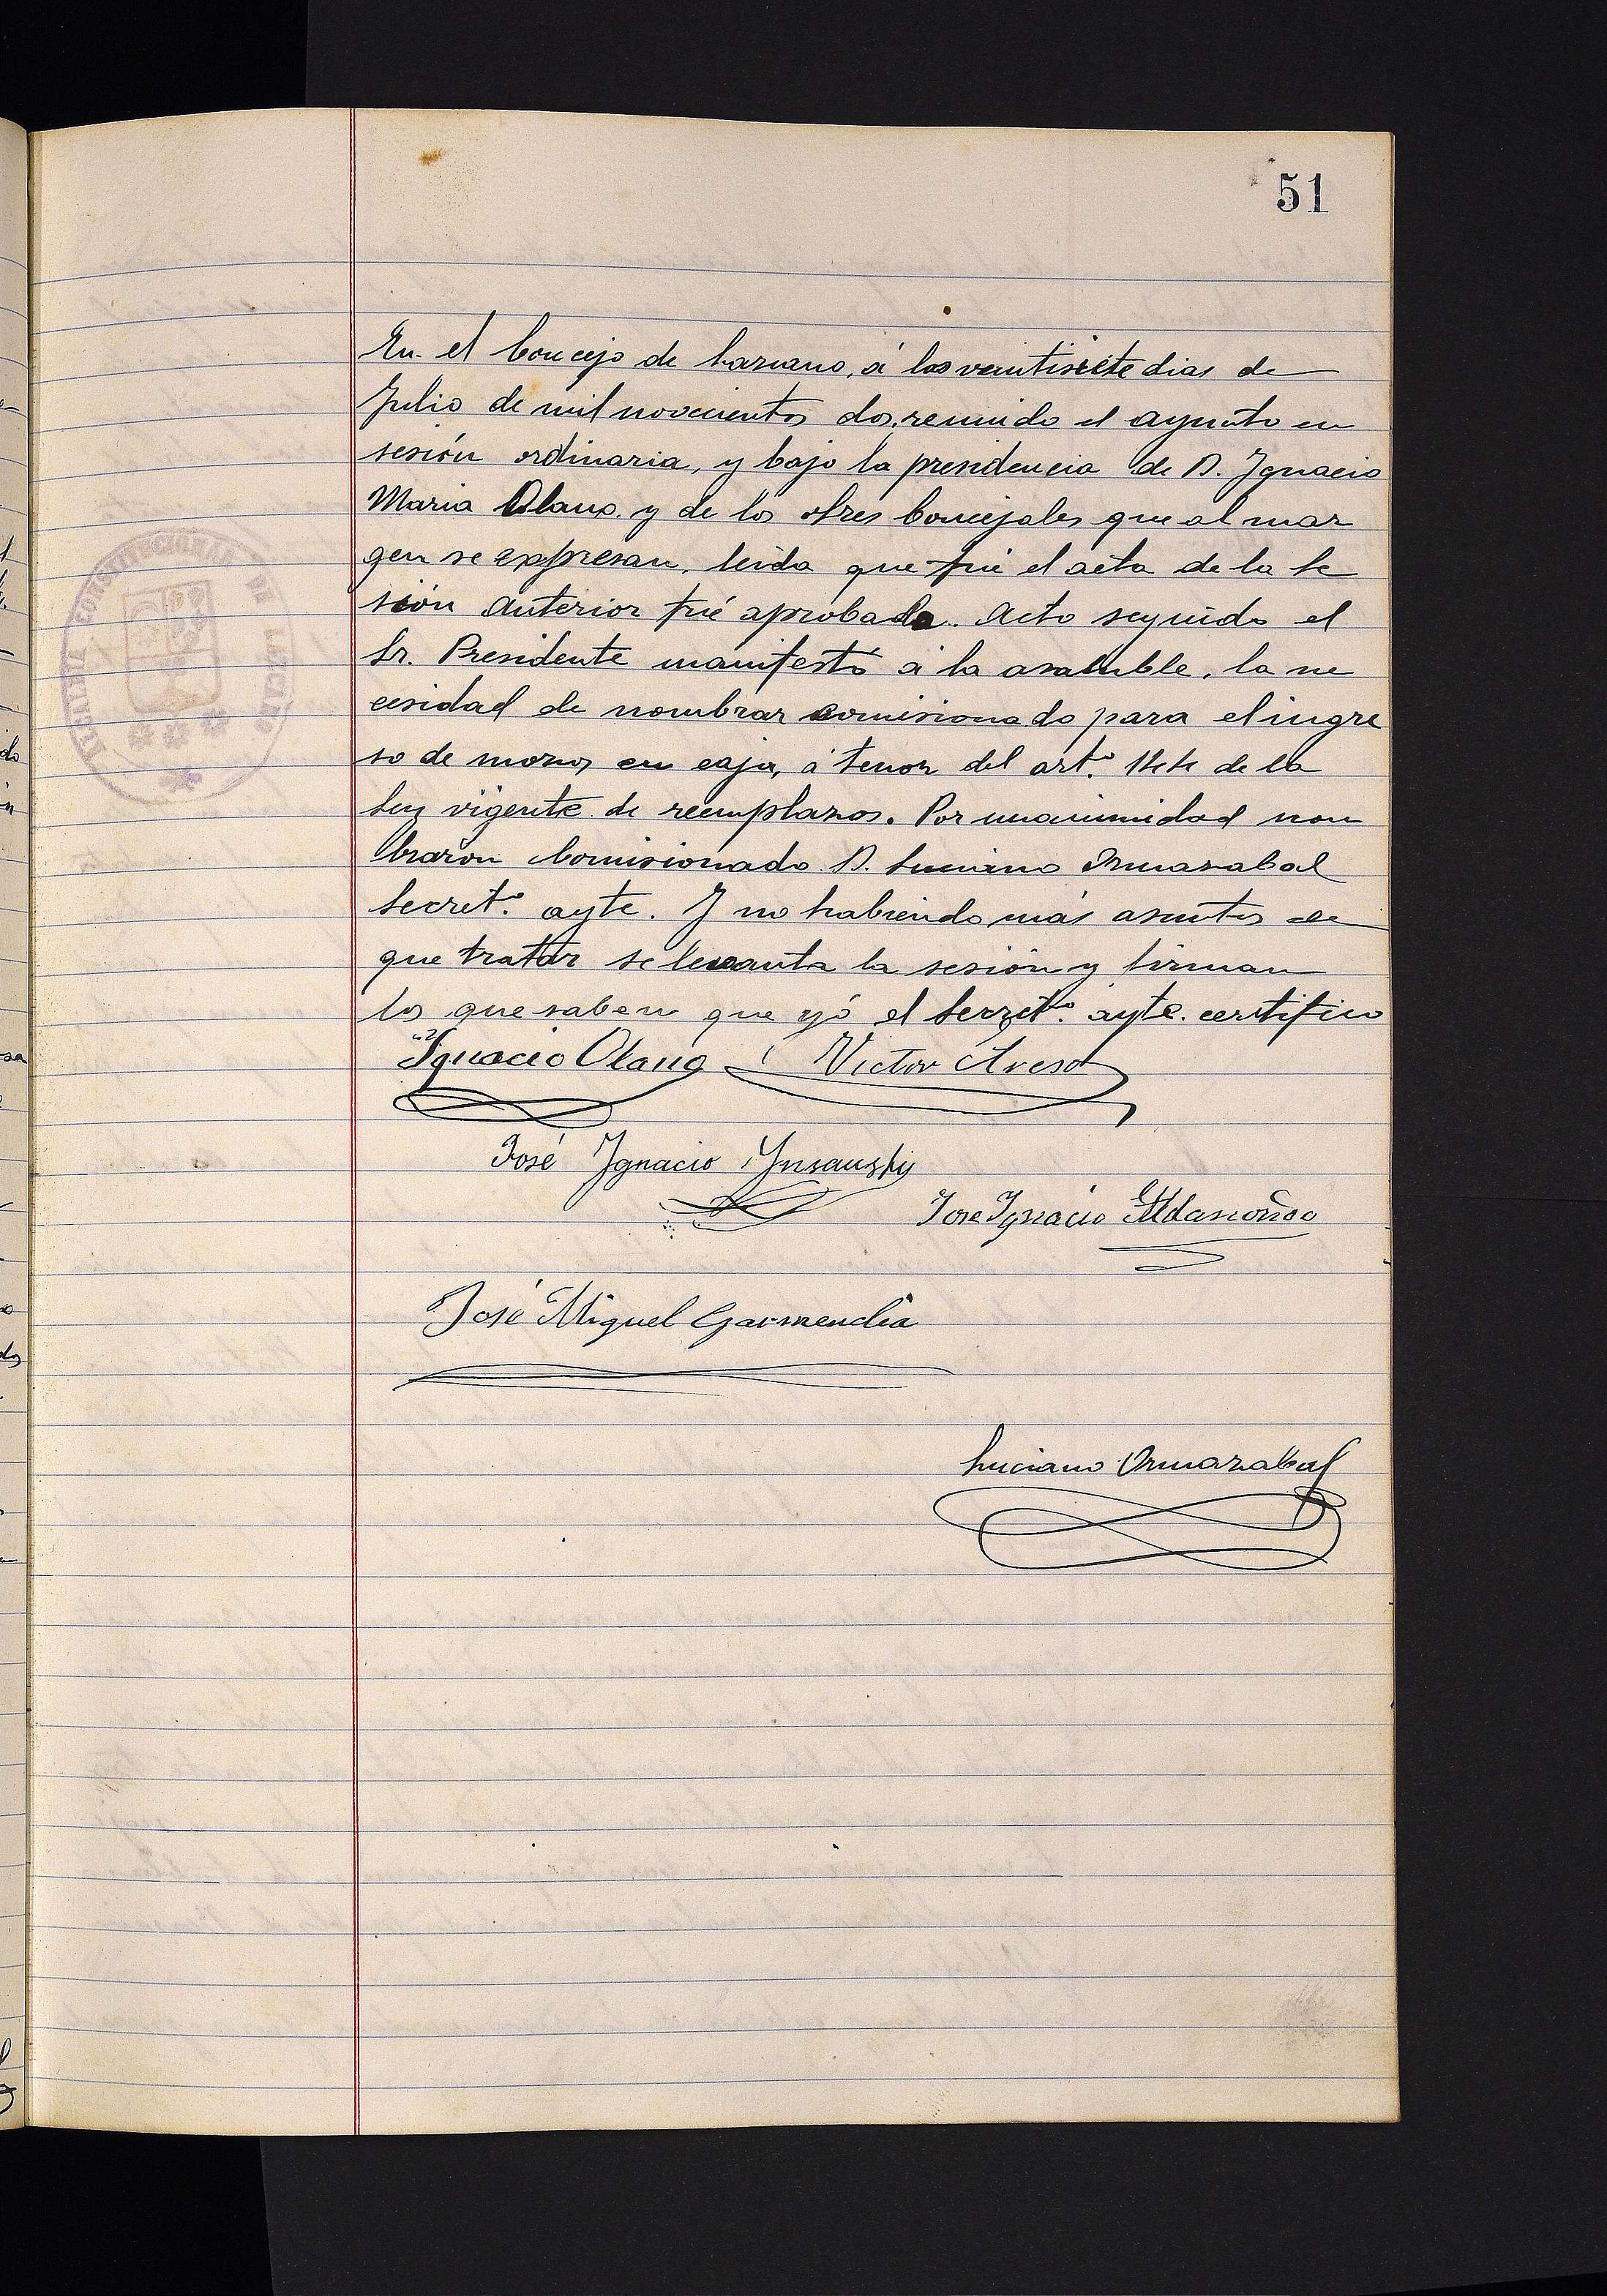 51
En el Concejo de Lazcano, á los veintisiete dias de
Julio de mil novecientos dos, reunido el aynto en
sesión ordinaria, y bajo la presidencia de D. Ignacio
Maria Olano y de los otres Concejales que al mar
gen se expresan, leida que fué el acta de la Se
sión anterior fué aprobada. Acto seguido el
Sr. Presidente manifestó á la asamble, la ne
cesidad de nombrar comisionado para el ingre
so de mozos en caja, á tenor del art.º de la
Ley vigente de reemplazos. Por unanimidad nom
braron Comisionado D. Luciano Ormazabal
Secret.º ayte. Y no habiendo más asuntos de
que tratar se levanta la sesión y firman
los que saben que yó el Secret.º ayte. certifico
Ignacio Olano Victor Aresa
José Ignacio Ynsausty
Jose Ignacio Aldasoro
José Miguel Garmendia
Luciano Ormazabal
CONSTITUCIONAL DE LAZCANO